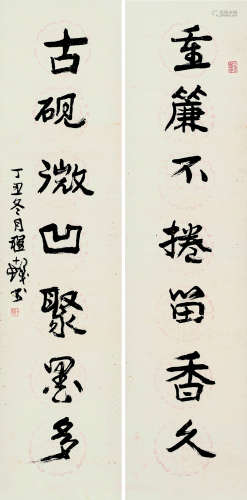 重簾不捲留香久
古硯微凹聚墨多
丁丑冬月程十髮书